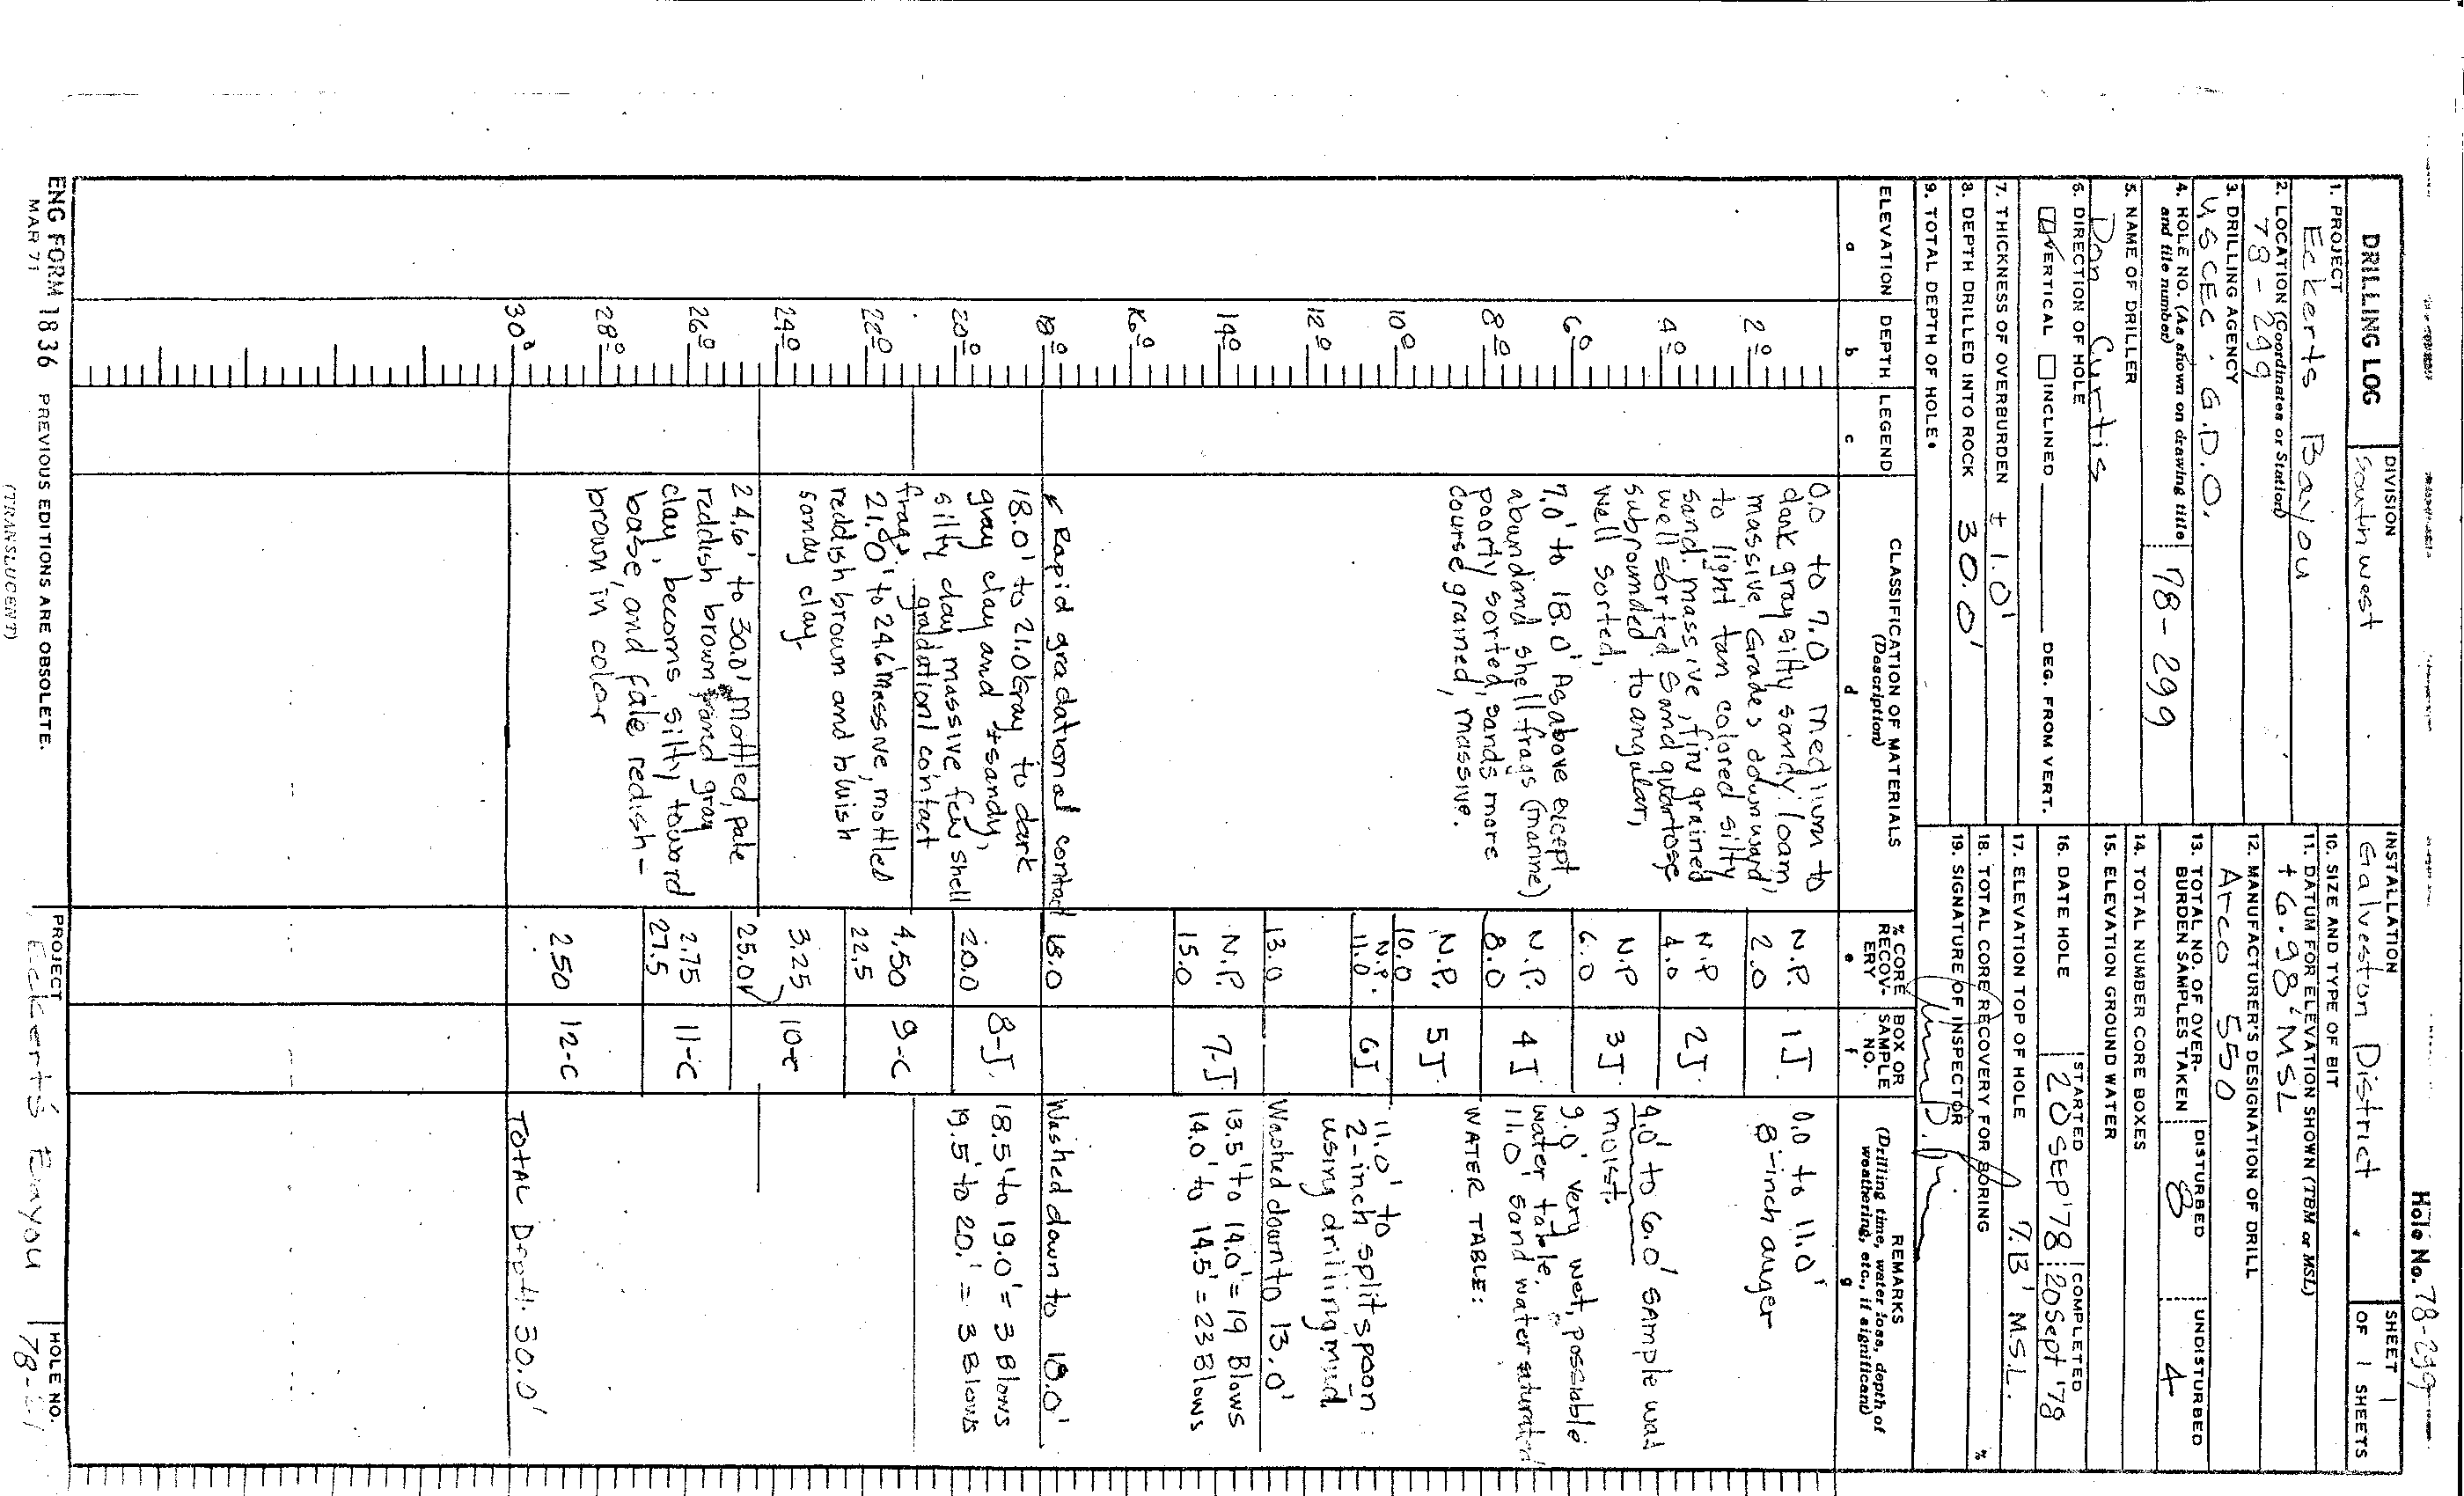 Hole No. 78-299
DRILLING LOG
DIVISION
Southwest
INSTALLATION
Galveston District
SHEET 1
OF 1 SHEETS
1. PROJECT
Eckerts Bayou
2. LOCATION (Coordinates or Station)
78-299
3. DRILLING AGENCY
USCEC. G.D.O.
4. HOLE NO. (As shown on drawing title and file number)
78-299
5. NAME OF DRILLER
Don Curtis
6. DIRECTION OF HOLE
VERTICAL INCLINED DEG. FROM VERT.
7. THICKNESS OF OVERBURDEN ± 1.0'
8. DEPTH DRILLED INTO ROCK 30.0'
9. TOTAL DEPTH OF HOLE
10. SIZE AND TYPE OF BIT
11. DATUM FOR ELEVATION SHOWN (TBM or MSL)
+6.98' MSL
12. MANUFACTURER'S DESIGNATION OF DRILL
Arco 550
13. TOTAL NO. OF OVER-
BURDEN SAMPLES TAKEN
DISTURBED
8
UNDISTURBED
4
14. TOTAL NUMBER CORE BOXES
15. ELEVATION GROUND WATER
16. DATE HOLE
STARTED
20 SEP '78
COMPLETED
20 Sept '78
17. ELEVATION TOP OF HOLE 7.13' M.S.L.
18. TOTAL CORE RECOVERY FOR BORING %
19. SIGNATURE OF INSPECTOR
ELEVATION
a
DEPTH
b
LEGEND
c
CLASSIFICATION OF MATERIALS
(Description)
d
% CORE
RECOV-
ERY
e
BOX OR
SAMPLE
NO.
f
REMARKS
(Drilling time, water loss, depth of
weathering, etc., if significant)
g
2.0
4.0
6.0
8.0
10.0
12.0
14.0
16.0
18.0
20.0
22.0
24.0
26.0
28.0
30.0
0.0 to 7.0, medium to
dark gray silty sandy loam,
massive, Grades downward
to light tan colored silty
sand. massive, fine grained
well sorted Sand quartose
subrounded to angular,
well sorted,
7.0' to 18.0' As above except
aboundand shell frags (marine)
poorly sorted, sands more
course grained, massive.
Rapid gradational contact
18.0' to 21.0' Gray to dark
gray clay and ± sandy,
silty clay, massive few shell
frags. gradationl contact
21.0' to 24.6' Massive, mottled
reddish brown and bluish
sandy clay-
24.6' to 30.0' Mottled, pale
reddish brown and gray
clay, becoms silty toward
base, and pale redish-
brown in color
N.P.
2.0
N.P
4.0
N.P
6.0
N.P.
8.0
N.P.
10.0
N.P.
11.0
13.0
N.P.
15.0
18.0
20.0
4.50
22.5
3.25
25.0
2.75
27.5
2.50
1J.
2J.
3J.
4J.
5J.
6J
7-J.
8-J.
9-C
10-C
11-C
12-C
0.0 to 11.0'
8-inch auger
4.0' to 6.0' SAmple was
moist.
9.0' very wet, possiable
water table.
11.0' sand water saturated
WATER TABLE:
11.0' to
2-inch split spoon
using drilling mud.
Washed down to 13.0'
13.5' to 14.0' = 19 Blows
14.0' to 14.5' = 23 Blows
Washed down to 18.0'
18.5' to 19.0' = 3 Blows
19.5' to 20.' = 3 Blows
TOTAL Depth 30.0'
ENG FORM 1836
MAR 71
PREVIOUS EDITIONS ARE OBSOLETE.
(TRANSLUCENT)
PROJECT
Eckert's Bayou
HOLE NO.